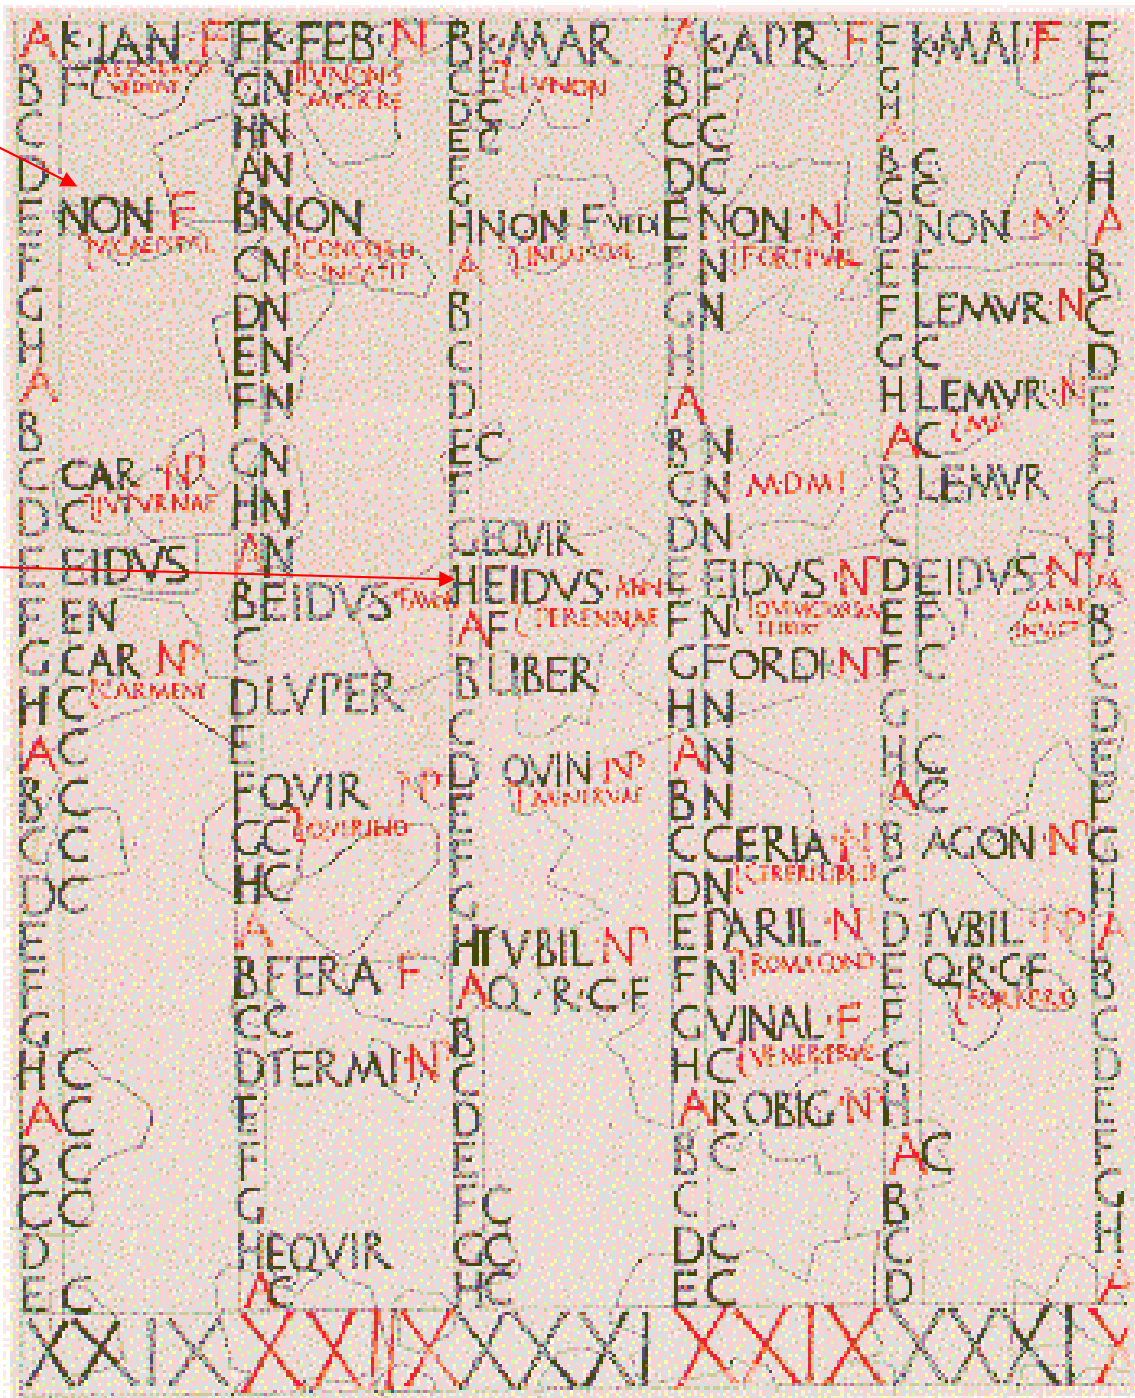 A K·IAN·F
B F
C
D
E NON F
F
G
H
A
B
C CAR NP
IVTVRNAE
D C
E EIDVS
F EN
G CAR NP
CARMENT
H C
A C
B C
C C
D C
E
F
G
H C
A C
B C
C C
D
E C
XXIX
F K·FEB·N
G N
IVNON·S
MATR·RE
H N
A N
B NON
CONCORD
C N
D N
E N
F N
G N
H N
A N
B EIDVS
C
D LVPER
E
F QVIR NP
QVIRINO
G C
H C
A
B FERA·F
C C
D TERMI·NP
E
F
G
H EQVIR
A C
XXIIX
B K·MAR
C F
IVNON
D C
E C
F
G
H NON F
A
B
C
D
E C
F
G EQVIR
H EIDVS·ANN
PERENNAE
A F
B LIBER
C
D QVIN NP
MINERVAE
E
F
G
H TVBIL·NP
A Q·R·C·F
B
C
D
E
F C
G C
H C
XXXI
A K·APR F
B F
C C
D C
E NON·N
FORT·PVBL
F N
G N
H
A
B N
C N M·D·M·I
D N
E EIDVS·NP
F N
G FORDI·NP
H N
A N
B N
C CERIA·N
D N
E PARIL·N
ROMA COND
F N
G VINAL·F
H C
A ROBIG·NP
B C
C
D C
E C
XXIX
F K·MAI·F
G
H
A
B C
C C
D NON·N
E F
F LEMVR·N
G C
H LEMVR·N
A C
B LEMVR
C
D EIDVS·NP
E F
F C
G
H C
A C
B AGON·NP
C
D TVBIL·NP
E Q·R·C·F
F
G
H
A C
B
C
D
XXXI
E
F
G
H
A
B
C
D
E
F
G
H
A
B
C
D
E
F
G
H
A
B
C
D
E
F
G
H
A